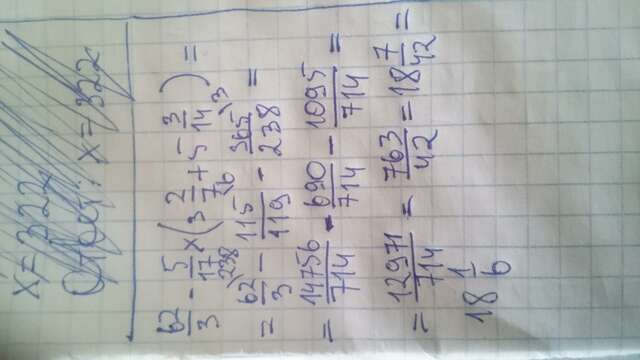 x = 322
Ответ: x = 322
62/3 - 5/17 × (3 2/7 + 5 3/14) =
= 62/3 - 115/119 - 365/238 =
= 14756/714 - 690/714 - 1095/714 =
= 12971/714 = 763/42 = 18 7/42 =
18 1/6